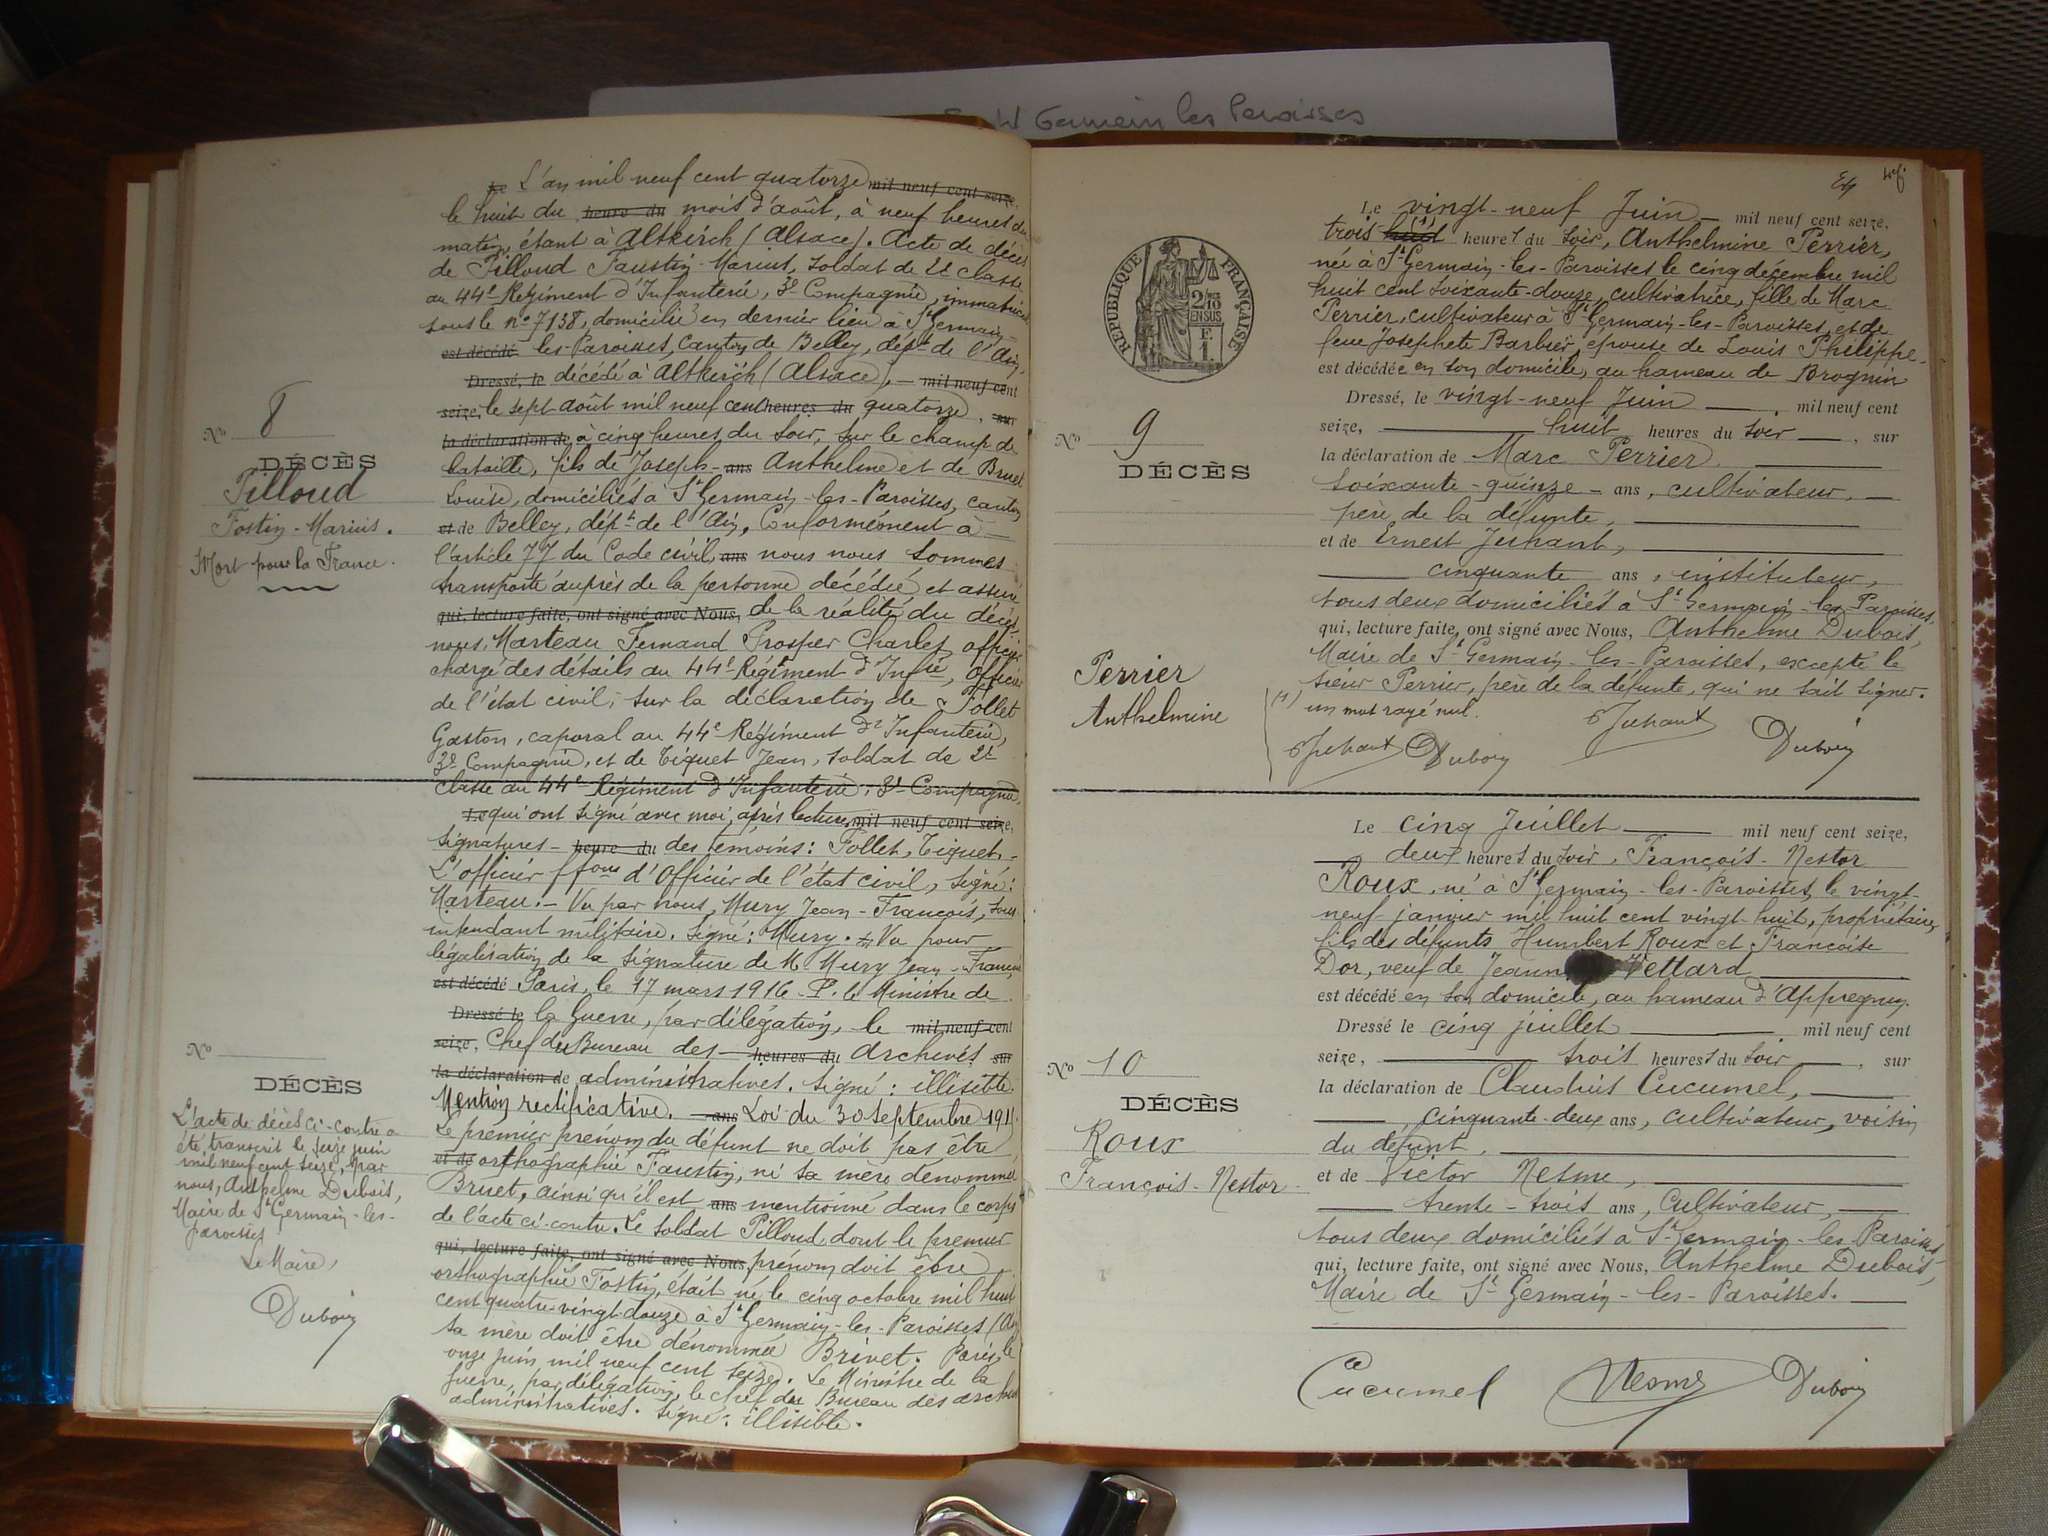 Germain les Paroisses
L'an mil neuf cent quatorze mil neuf cent seize,
le huit du heure du mois d'août, à neuf heures du
matin, étant à Altkirch (Alsace). Acte de décès
de Pilloud Faustin-Marius, soldat de 2e classe
au 44e Régiment d'Infanterie, 3e Compagnie, immatriculé
sous le no 7138, domicilié en dernier lieu à St Germain-
est décédé les-Paroisses, canton de Belley, dépt de l'Ain,
Dressé, le décédé à Altkirch (Alsace), — mil neuf cent
seize, le sept août mil neuf cent heures du quatorze, sur
la déclaration de à cinq heures du soir, sur le champ de
bataille, fils de Joseph- ans Anthelme et de Bruet
Louise, domiciliés à St Germain-les-Paroisses, canton
et de de Belley, dépt de l'Ain. Conformément à
l'article 77 du Code civil, ans nous nous sommes
transporté auprès de la personne décédée et assuré
qui, lecture faite, ont signé avec Nous, de la réalité du décès
nous, Marteau Fernand Prosper Charles, officier
chargé des détails au 44e Régiment d'Infie, officier
de l'état civil, sur la déclaration de Follet
Gaston, caporal au 44e Régiment d'Infanterie,
3e Compagnie, et de Tiquet Jean, soldat de 2e
classe au 44e Régiment d'Infanterie, 3e Compagnie,
Le qui ont signé avec moi, après lecture, mil neuf cent seize,
Signatures - heure du des témoins: Follet, Tiquet,
L'officier ffons d'Officier de l'état civil, signé:
Marteau. - Vu par nous, Mury Jean-François, sous
intendant militaire. Signé: Mury. - Vu pour
légalisation de la signature de M. Mury Jean-François
est décédé Paris, le 17 mars 1916 - P. le Ministre de
Dressé le la Guerre, par délégation, le mil neuf cent
seize, Chef du Bureau des heures du archives sur
la déclaration de administratives. Signé: illisible.
Mention rectificative. ans Loi du 30 septembre 191
Le premier prénom du défunt ne doit pas être
et de orthographié Faustin, ni sa mère dénommée
Bruet, ainsi qu'il est ans mentionné dans le corps
de l'acte ci-contre. Le soldat Pilloud dont le premier
qui, lecture faite, ont signé avec Nous, prénom doit être
orthographié Fostin, était né le cinq octobre mil huit
cent quatre-vingt-douze à St Germain-les-Paroisses (Ain
sa mère doit être dénommée Brivet. Paris, le
onze juin mil neuf cent seize. Le Ministre de la
guerre, par délégation, le chef du Bureau des archives
administratives. Signé: illisible.
No 8
DÉCÈS
Pilloud
Fostin-Marius.
Mort pour la France.
No
DÉCÈS
L'acte de décès ci-contre a
été transcrit le seize juin
mil neuf cent seize, par
nous, Anthelme Dubois,
Maire de St Germain-les-
paroisses
Le Maire,
Dubois
RÉPUBLIQUE FRANÇAISE
2/10
EN SUS
F.
1.
Le vingt-neuf Juin — mil neuf cent seize,
trois heures du soir, Anthelmine Perrier,
née à St Germain-les-Paroisses le cinq décembre mil
huit cent soixante-douze, cultivatrice, fille de Marc
Perrier, cultivateur à St Germain-les-Paroisses, et de
feue Josephete Barbier, épouse de Louis Philippe
est décédée en son domicile, au hameau de Brognin
Dressé, le vingt-neuf Juin —, mil neuf cent
seize, — huit heures du soir —, sur
la déclaration de Marc Perrier —
soixante-quinze - ans, cultivateur, —
père de la défunte, —
et de Ernest Juhant, —
— cinquante ans, instituteur,
tous deux domiciliés à St Germain-les-Paroisses,
qui, lecture faite, ont signé avec Nous, Anthelme Dubois,
Maire de St Germain-les-Paroisses, excepté le
sieur Perrier, père de la défunte, qui ne sait signer.
(1) un mot rayé nul.
Juhant Dubois
Juhant Dubois
No 9
DÉCÈS
Perrier
Anthelmine
Le cinq Juillet — mil neuf cent seize,
— deux heures du soir, François-Nestor
Roux, né à St Germain-les-Paroisses, le vingt-
neuf janvier mil huit cent vingt-huit, propriétaire,
fils des défunts Humbert Roux et Françoise
Dor, veuf de Jeann Vettard —
est décédé en son domicile, au hameau d'Appregnin.
Dressé le cinq juillet — mil neuf cent
seize, — trois heures du soir —, sur
la déclaration de Claudius Cucumel, —
—, cinquante-deux ans, cultivateur, voisin
du défunt, —
et de Victor Nesme, —
— trente-trois ans, Cultivateur, —
tous deux domiciliés à St Germain-les-Paroisses,
qui, lecture faite, ont signé avec Nous, Anthelme Dubois,
Maire de St Germain-les-Paroisses. —
Cucumel Nesme Dubois
No 10
DÉCÈS
Roux
François-Nestor